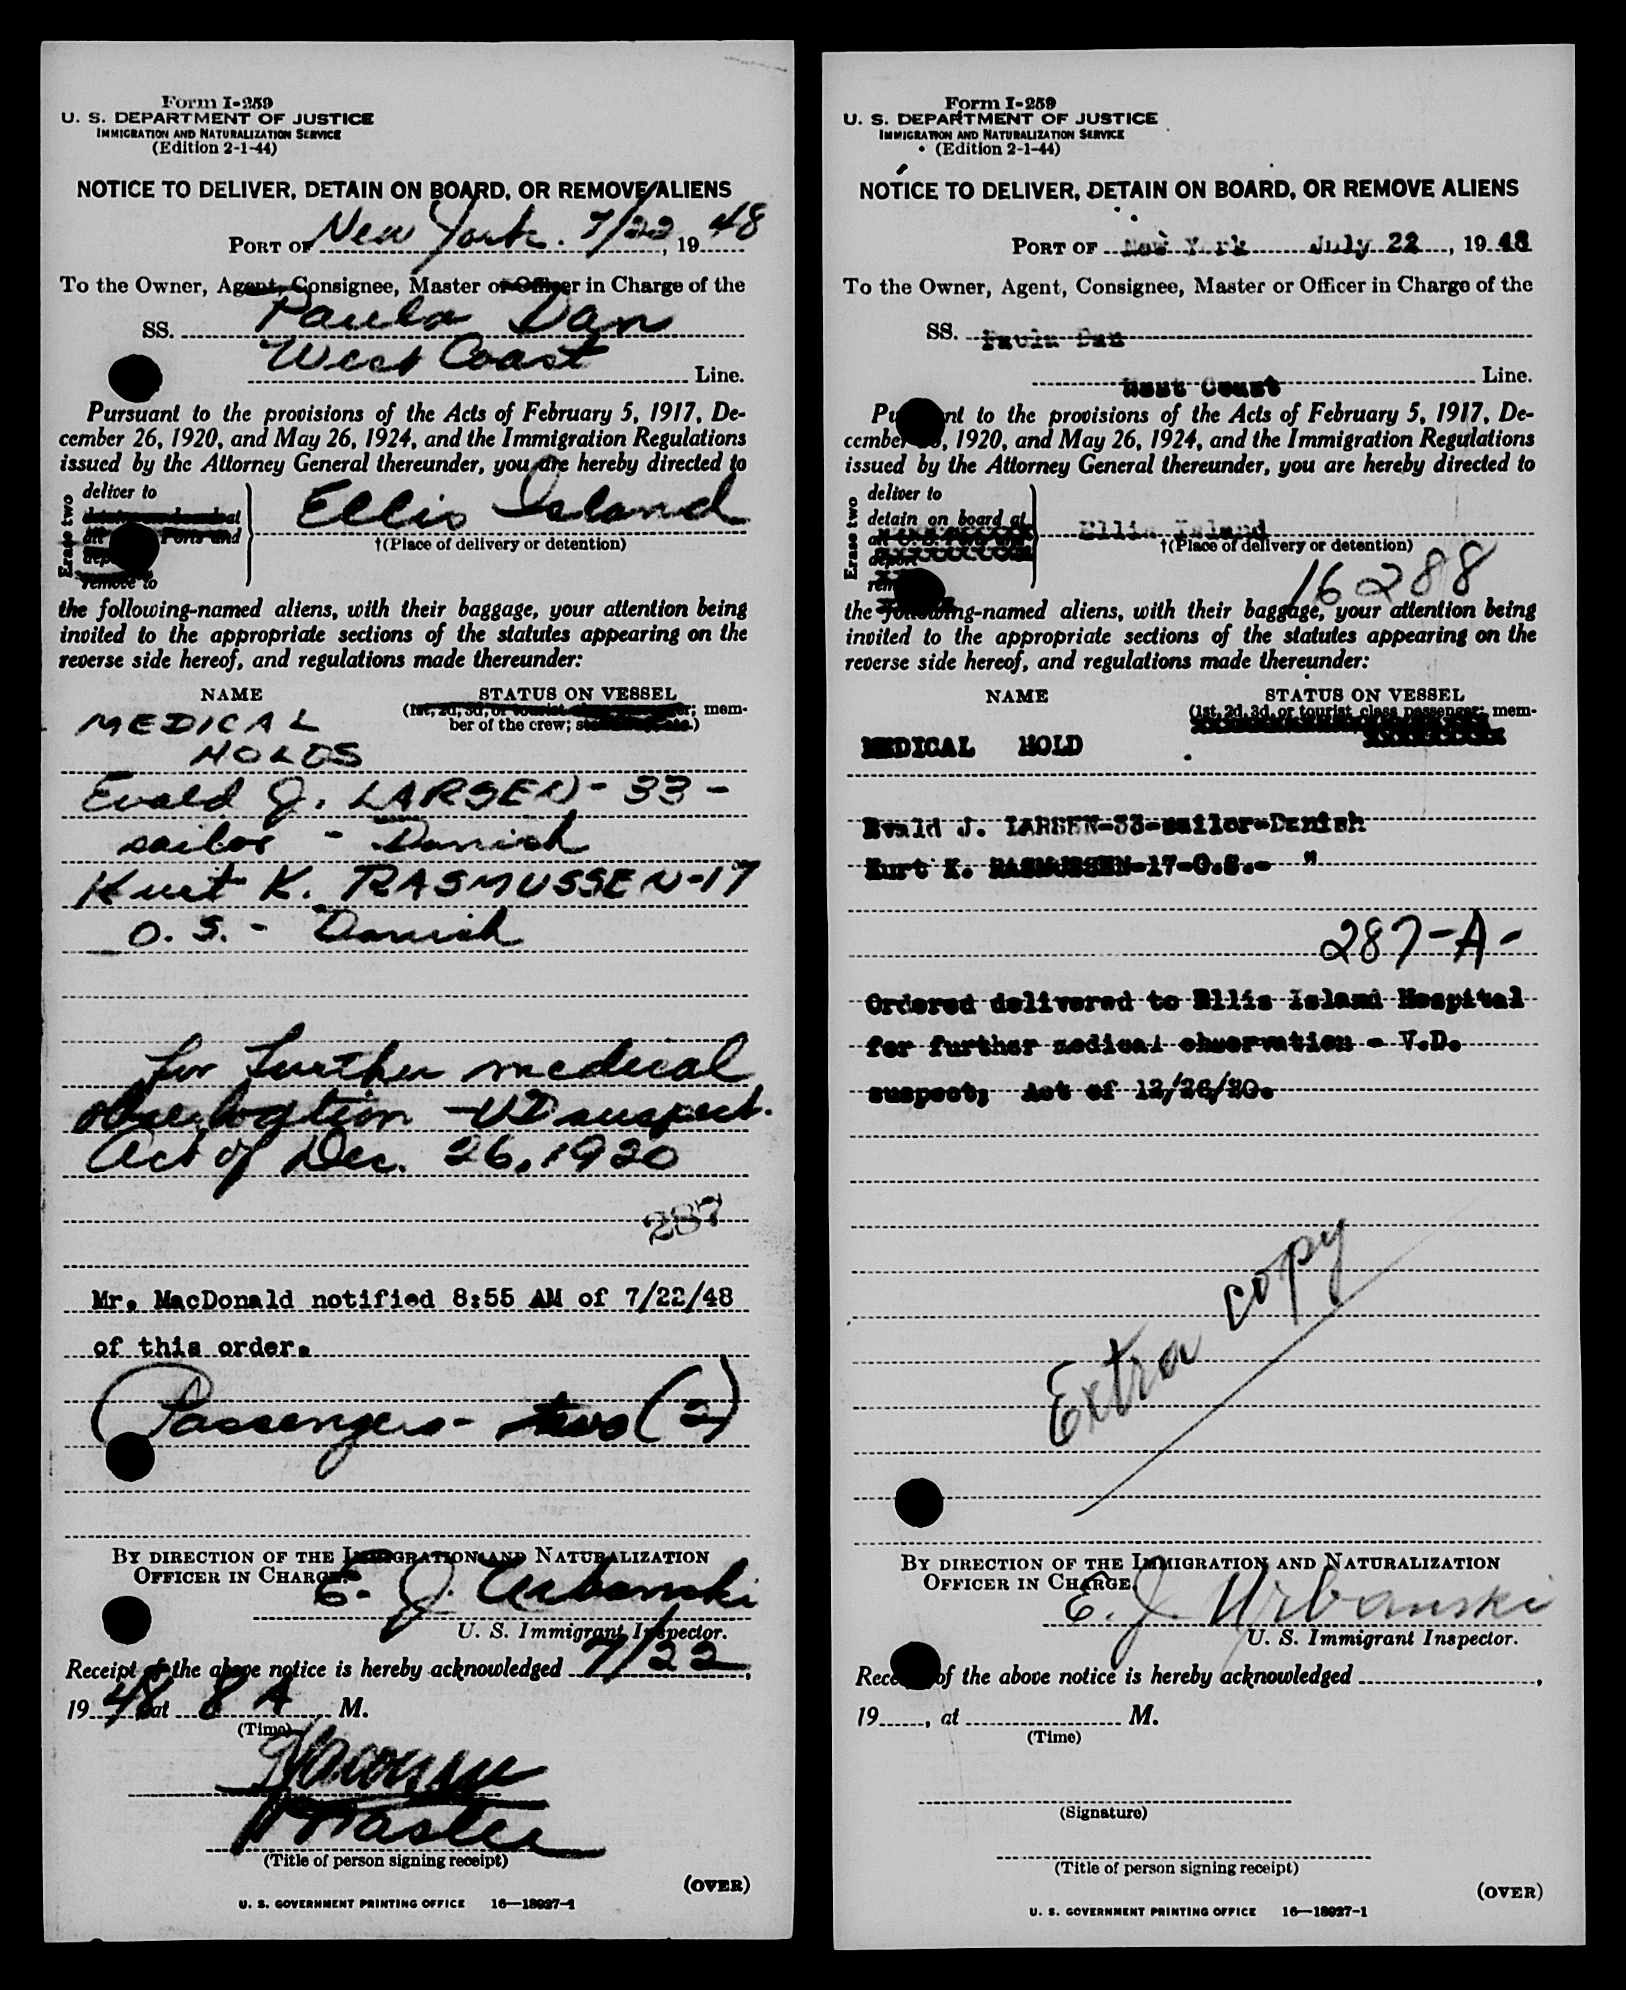 Form I-259
U. S. DEPARTMENT OF JUSTICE
IMMIGRATION AND NATURALIZATION SERVICE
(Edition 2-1-44)
NOTICE TO DELIVER, DETAIN ON BOARD, OR REMOVE ALIENS
PORT OF New York. 7/22, 19 48
To the Owner, Agent, Consignee, Master or Officer in Charge of the
SS. Paula Dan
West Coast Line.
Pursuant to the provisions of the Acts of February 5, 1917, De-
cember 26, 1920, and May 26, 1924, and the Immigration Regulations
issued by the Attorney General thereunder, you are hereby directed to
Erase two
deliver to
Ports and
remove to
Ellis Island
†(Place of delivery or detention)
the following-named aliens, with their baggage, your attention being
invited to the appropriate sections of the statutes appearing on the
reverse side hereof, and regulations made thereunder:
NAME STATUS ON VESSEL
(1st, 2d, 3d, or tourist mem-
ber of the crew;
MEDICAL
HOLDS
Evald J. LARSEN - 33 -
sailor - Danish
Kurt K. RASMUSSEN - 17
O. S. - Danish
for further medical
observation - VD suspect.
Act of Dec. 26, 1920
287
Mr. MacDonald notified 8:55 AM of 7/22/48
of this order.
(Passengers - two (2)
BY DIRECTION OF THE IMMIGRATION AND NATURALIZATION
OFFICER IN CHARGE.
E. J. Urbanski
U. S. Immigrant Inspector.
Receipt of the above notice is hereby acknowledged 7/22,
19 48 at 8 A M.
(Time)
Master
(Title of person signing receipt)
(OVER)
U. S. GOVERNMENT PRINTING OFFICE 16—18927-1
Form I-259
U. S. DEPARTMENT OF JUSTICE
IMMIGRATION AND NATURALIZATION SERVICE
(Edition 2-1-44)
NOTICE TO DELIVER, DETAIN ON BOARD, OR REMOVE ALIENS
PORT OF New York July 22, 19 48
To the Owner, Agent, Consignee, Master or Officer in Charge of the
SS. Paula Dan
West Coast Line.
Pu nt to the provisions of the Acts of February 5, 1917, De-
cember , 1920, and May 26, 1924, and the Immigration Regulations
issued by the Attorney General thereunder, you are hereby directed to
Erase two
deliver to
detain on board at
deport
rem
Ellis Island
†(Place of delivery or detention)
16288
the following-named aliens, with their baggage, your attention being
invited to the appropriate sections of the statutes appearing on the
reverse side hereof, and regulations made thereunder:
NAME STATUS ON VESSEL
(1st, 2d, 3d, or tourist class passenger; mem-
MEDICAL HOLD
Evald J. LARSEN-33-sailor-Danish
Kurt K. RASMUSSEN-17-O.S.- "
287-A-
Ordered delivered to Ellis Island Hospital
for further medical observation - V.D.
suspect; Act of 12/26/20.
Extra copy
BY DIRECTION OF THE IMMIGRATION AND NATURALIZATION
OFFICER IN CHARGE.
E. J. Urbanski
U. S. Immigrant Inspector.
Rece of the above notice is hereby acknowledged ,
19 , at M.
(Time)
(Signature)
(Title of person signing receipt)
(OVER)
U. S. GOVERNMENT PRINTING OFFICE 16—18927-1